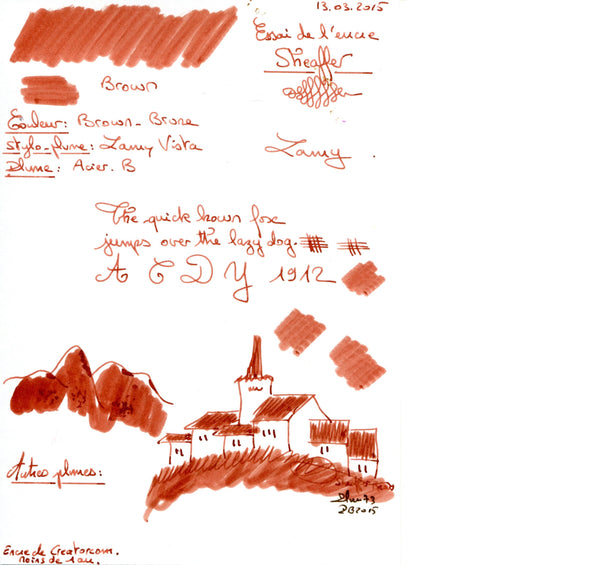 13.03.2015
Essai de l'encre
Sheaffer
Brown
Couleur: Brown - Brune
Stylo-plume: Lamy Vista
Plume: Acier. B
Lamy
The quick brown fox
jumps over the lazy dog.
A C D Y 1912
Autres plumes:
2015
Encre de Creatorcom.
moins de 1 an.